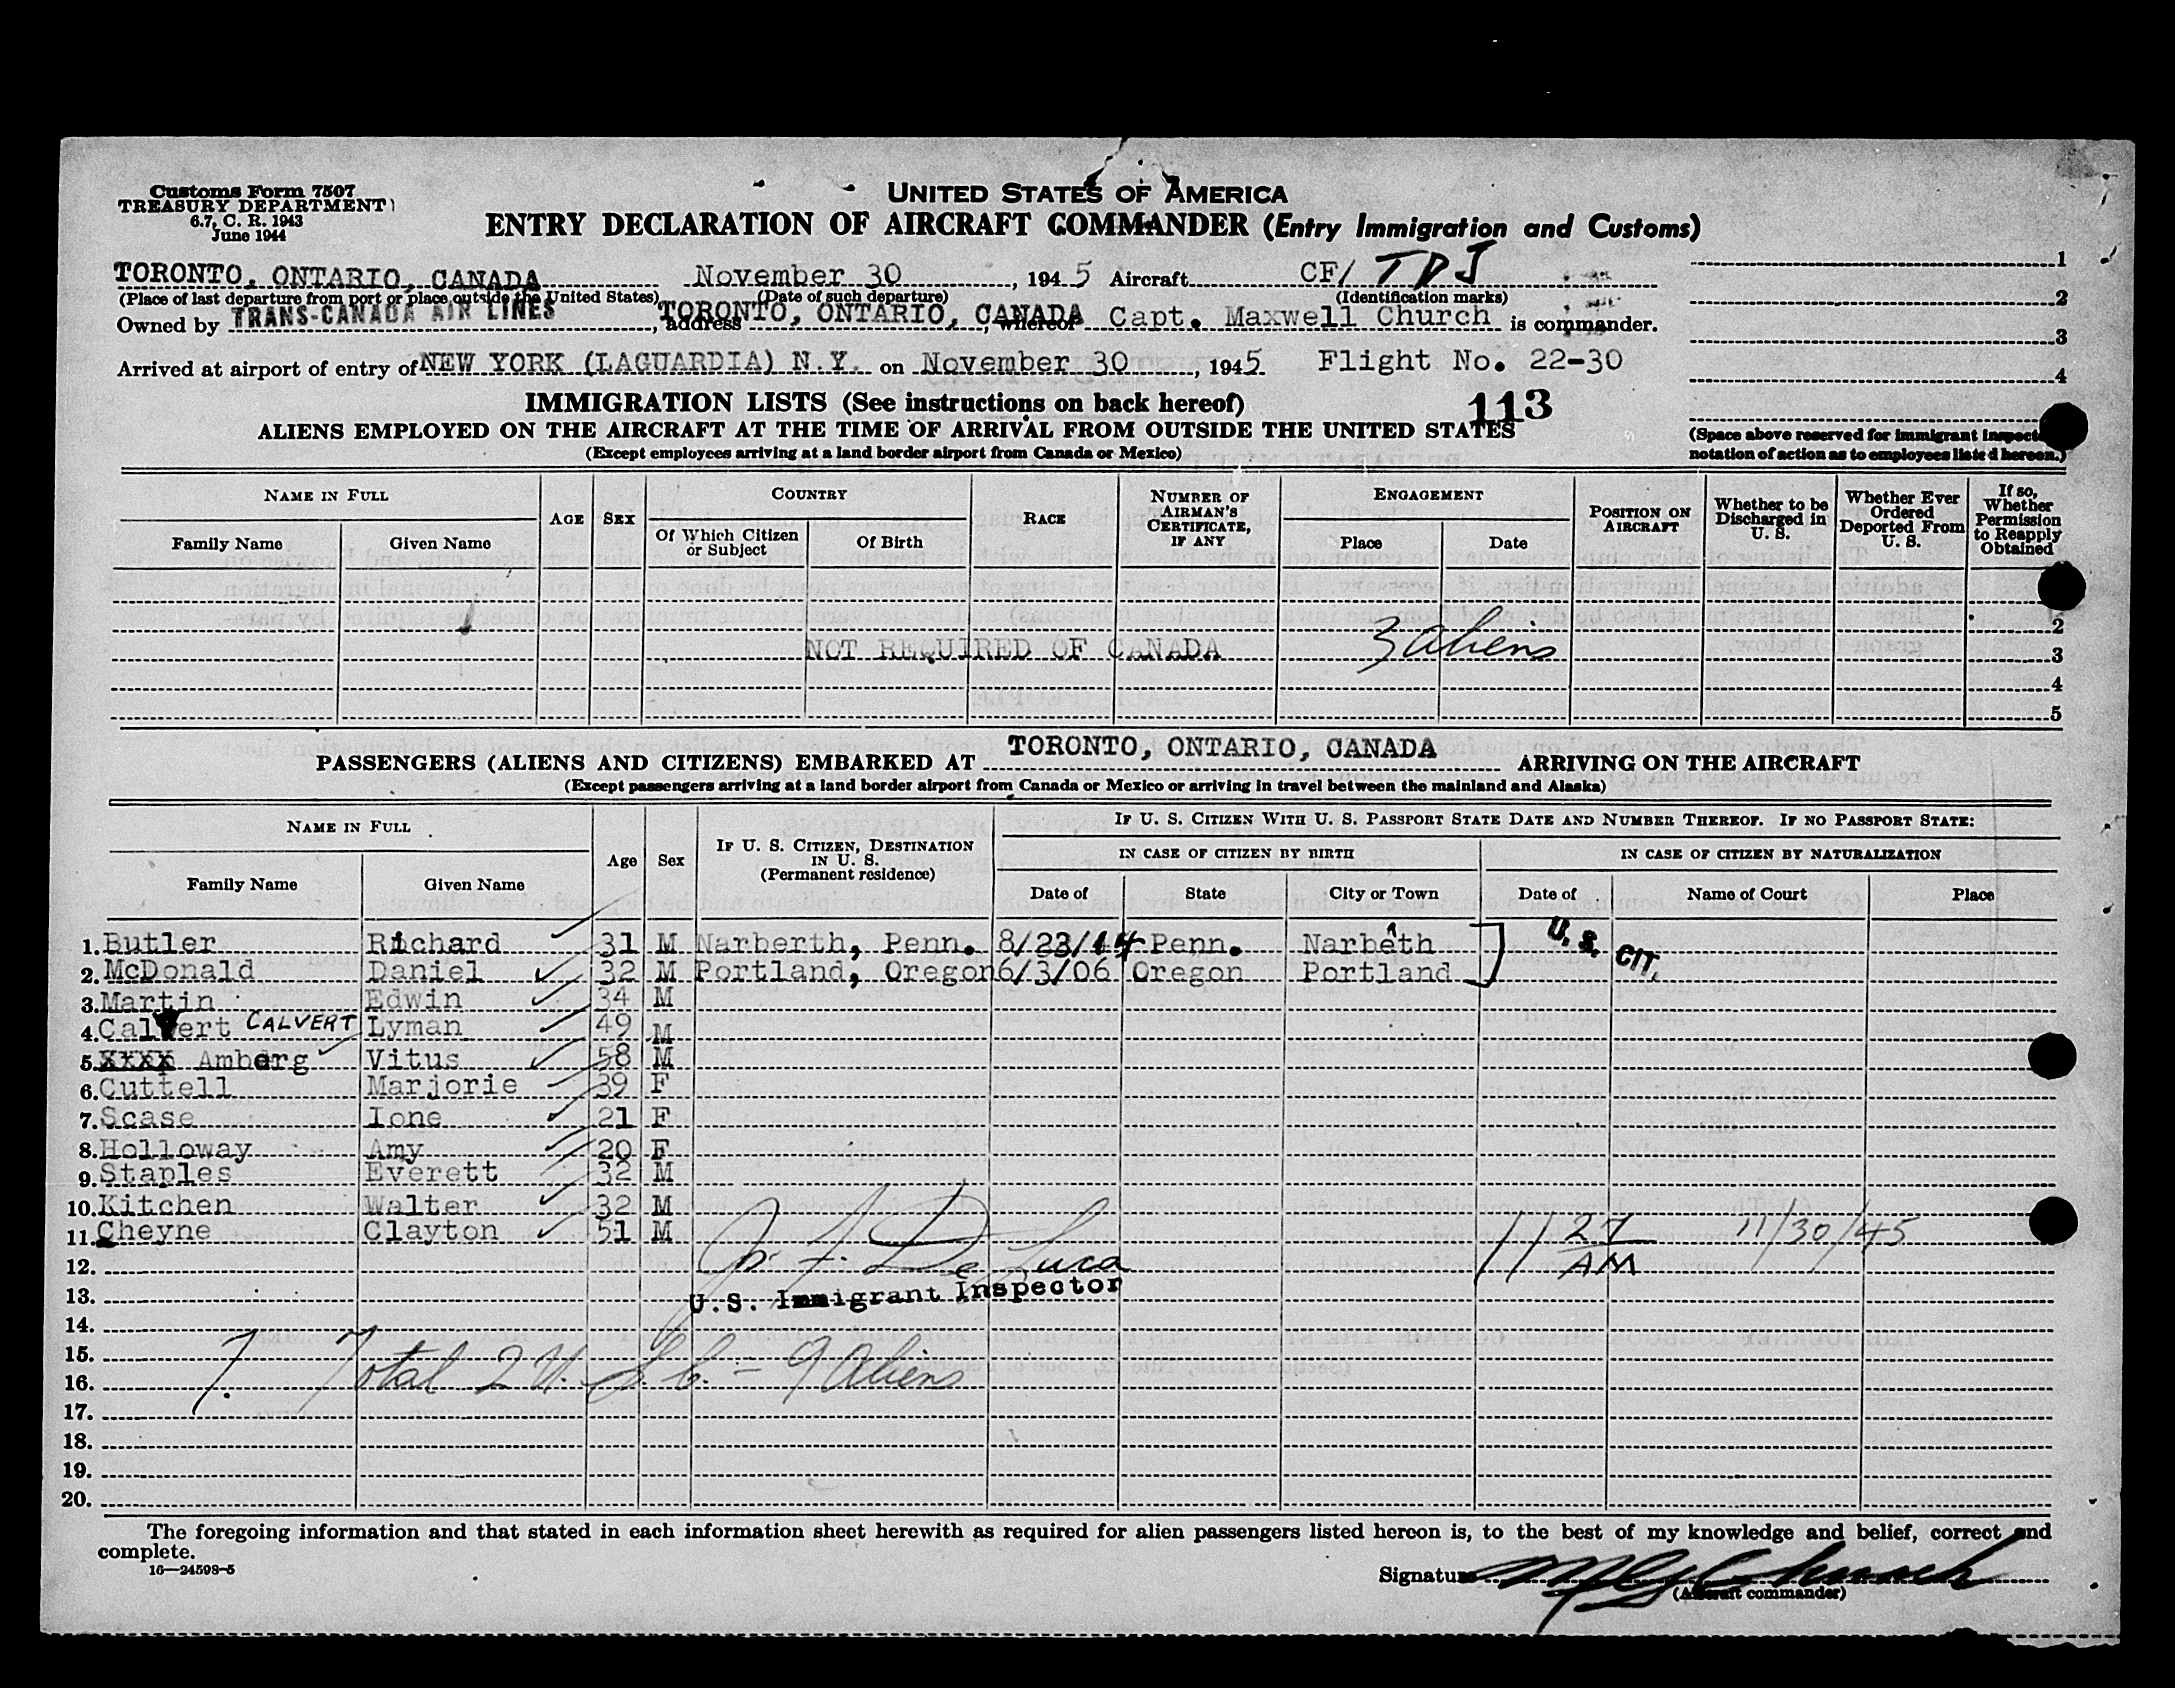 Customs Form 7507
TREASURY DEPARTMENT
6.7, C. R. 1943
June 1944
UNITED STATES OF AMERICA
ENTRY DECLARATION OF AIRCRAFT COMMANDER (Entry Immigration and Customs)
TORONTO, ONTARIO, CANADA November 30, 1945 Aircraft CF/ TDJ 1
(Place of last departure from port or place outside the United States) (Date of such departure) (Identification marks) 2
Owned by TRANS-CANADA AIR LINES, address TORONTO, ONTARIO, CANADA, whereof Capt. Maxwell Church is commander. 3
Arrived at airport of entry of NEW YORK (LAGUARDIA) N.Y. on November 30, 1945 Flight No. 22-30 4
IMMIGRATION LISTS (See instructions on back hereof) 113
ALIENS EMPLOYED ON THE AIRCRAFT AT THE TIME OF ARRIVAL FROM OUTSIDE THE UNITED STATES
(Except employees arriving at a land border airport from Canada or Mexico)
(Space above reserved for immigrant inspect
notation of action as to employees listed hereon.)
NAME IN FULL AGE SEX COUNTRY RACE NUMBER OF AIRMAN'S CERTIFICATE, IF ANY ENGAGEMENT POSITION ON AIRCRAFT Whether to be Discharged in U. S. Whether Ever Ordered Deported From U. S. If so, Whether Permission to Reapply Obtained
Family Name Given Name Of Which Citizen or Subject Of Birth Place Date
2
NOT REQUIRED OF CANADA 3 aliens 3
4
5
PASSENGERS (ALIENS AND CITIZENS) EMBARKED AT TORONTO, ONTARIO, CANADA ARRIVING ON THE AIRCRAFT
(Except passengers arriving at a land border airport from Canada or Mexico or arriving in travel between the mainland and Alaska)
NAME IN FULL Age Sex IF U. S. CITIZEN, DESTINATION IN U. S. (Permanent residence) IF U. S. CITIZEN WITH U. S. PASSPORT STATE DATE AND NUMBER THEREOF. IF NO PASSPORT STATE:
IN CASE OF CITIZEN BY BIRTH IN CASE OF CITIZEN BY NATURALIZATION
Family Name Given Name Date of State City or Town Date of Name of Court Place
1. Butler Richard 31 M Narberth, Penn. 8/23/14 Penn. Narbeth U. S. CIT.
2. McDonald Daniel 32 M Portland, Oregon 6/3/06 Oregon Portland
3. Martin Edwin 34 M
4. Calvert CALVERT Lyman 49 M
5. XXXX Amberg Vitus 58 M
6. Cuttell Marjorie 39 F
7. Scase Ione 21 F
8. Holloway Amy 20 F
9. Staples Everett 32 M
10. Kitchen Walter 32 M
11. Cheyne Clayton 51 M 11 27 AM 11/30/45
12. De Luca
13. U.S. Immigrant Inspector
14.
15.
16. T. Total 2 U.S.C. = 9 Aliens
17.
18.
19.
20.
The foregoing information and that stated in each information sheet herewith as required for alien passengers listed hereon is, to the best of my knowledge and belief, correct and
complete.
16—24598-5
Signature M G Church
(Aircraft commander)